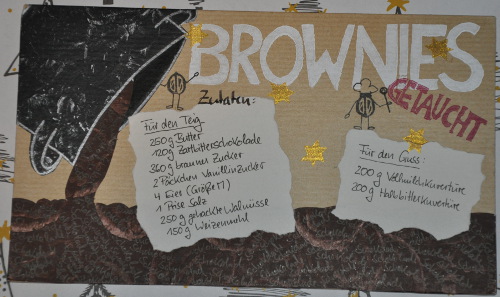 BROWNIES
GETAUCHT
Zutaten:
Für den Teig
250g Butter
120g Zartbitterschokolade
360g brauner Zucker
2 Päckchen Vanillinzucker
4 Eier (Größe M)
1 Prise Salz
250g gehackte Walnüsse
150g Weizenmehl
Für den Guss:
200g Vollmilchkuvertüre
200g Halbbitterkuvertüre